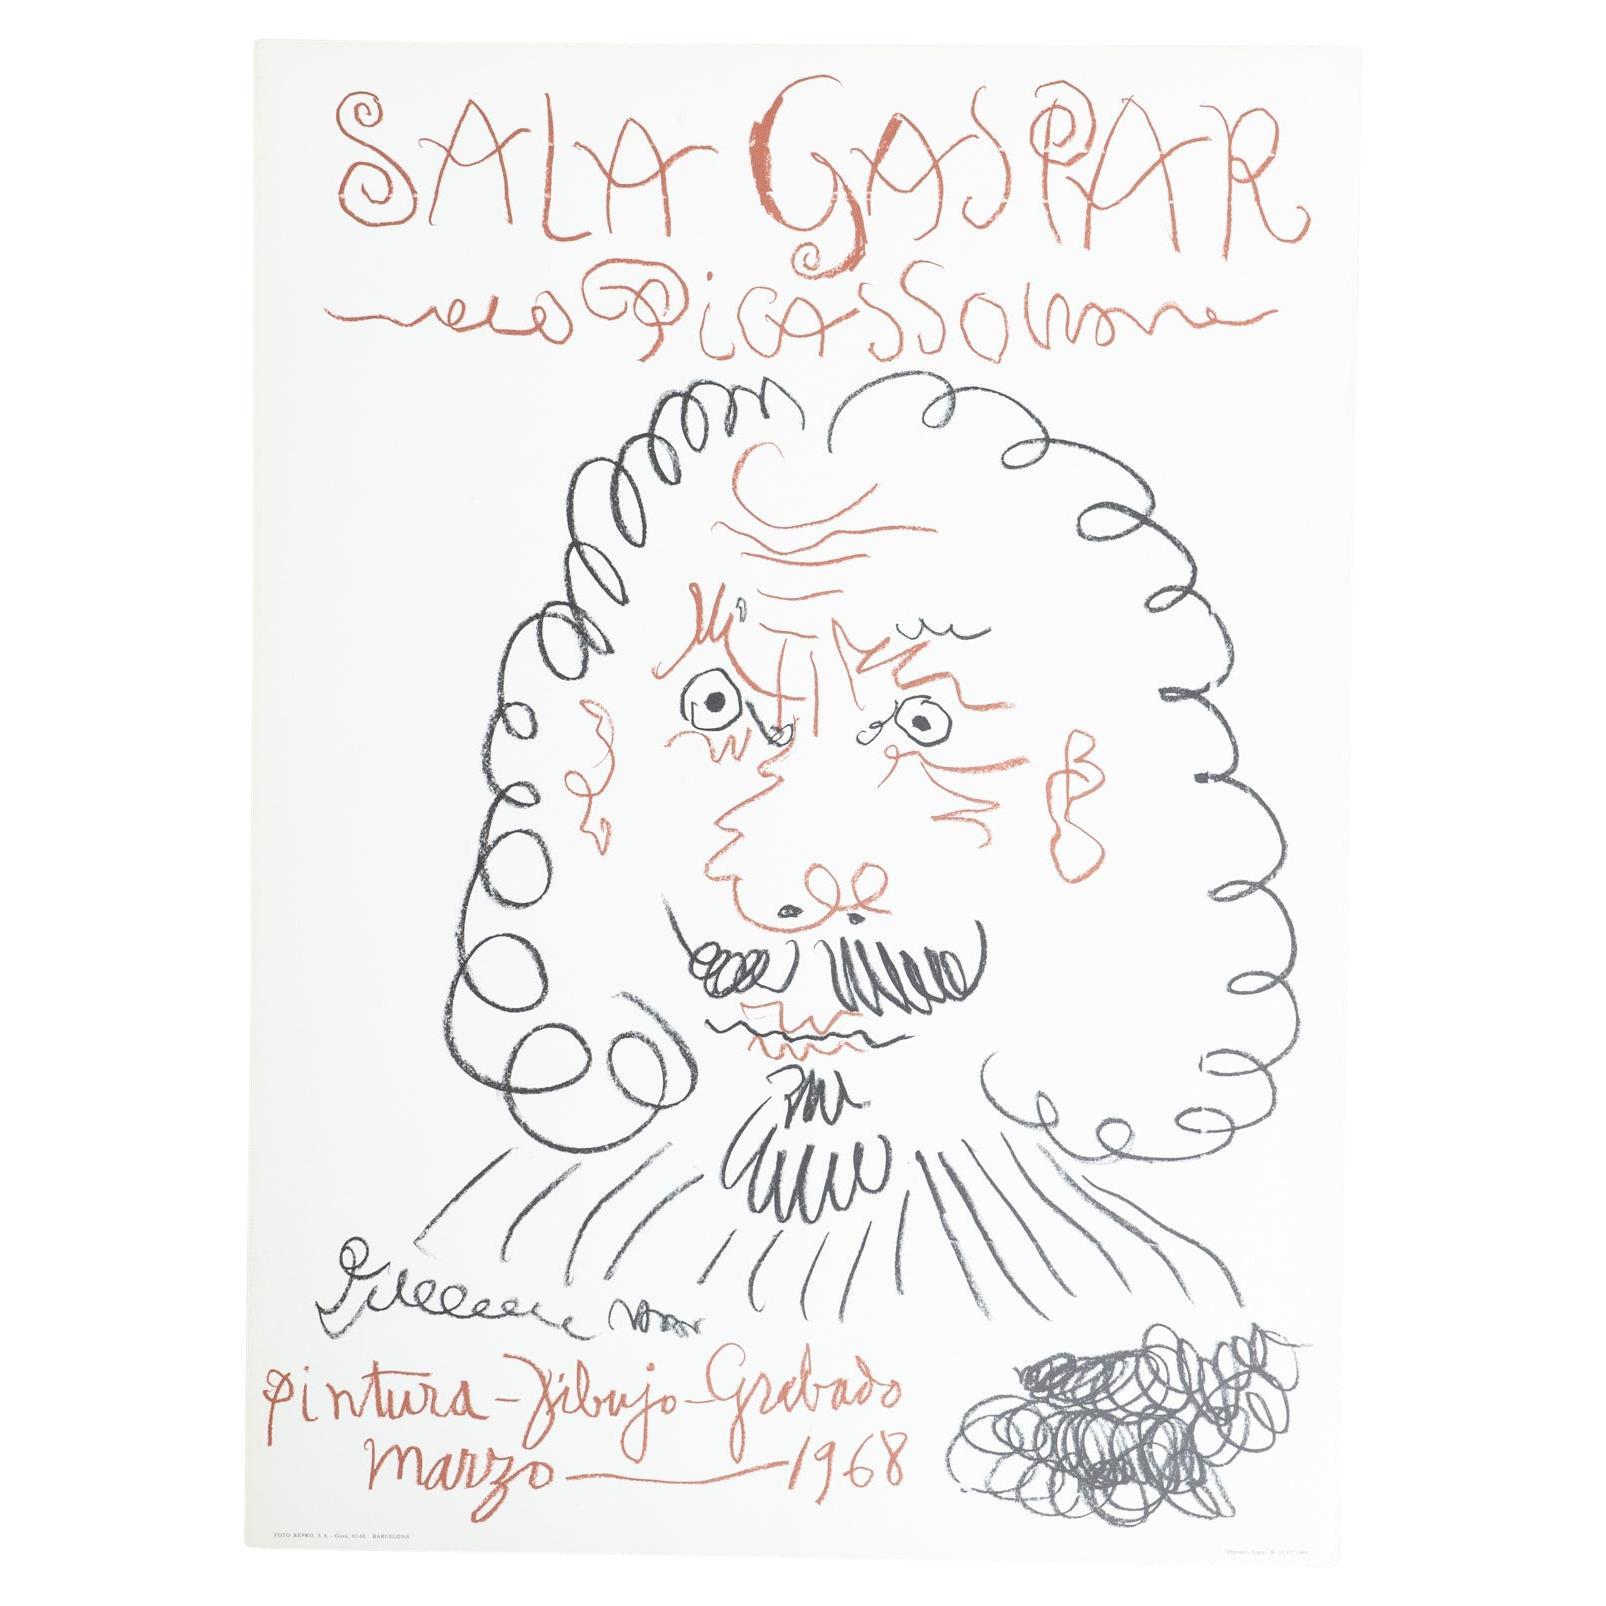 SALA GASPAR
Picasso
pintura - Dibujo - Grabado
marzo — 1968
FOTO REPRO, S.A. - Gavá, 62-68. BARCELONA